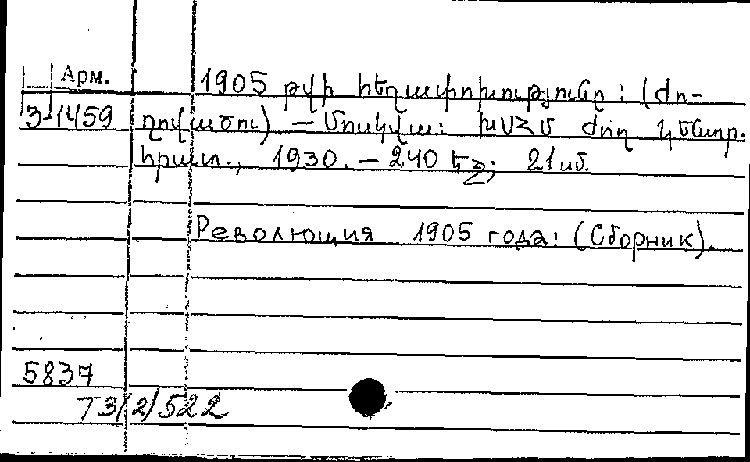 Арм. 1905 թվի հեղափոխությունը: (Ժո-
3-1459 ղովածու) – Մոսկվա: ԽՍՀՄ Ժող կենտր.
հրատ., 1930. – 240 եջ; 21սմ
Революция 1905 года: (Сборник).
5837
Т3(2)522